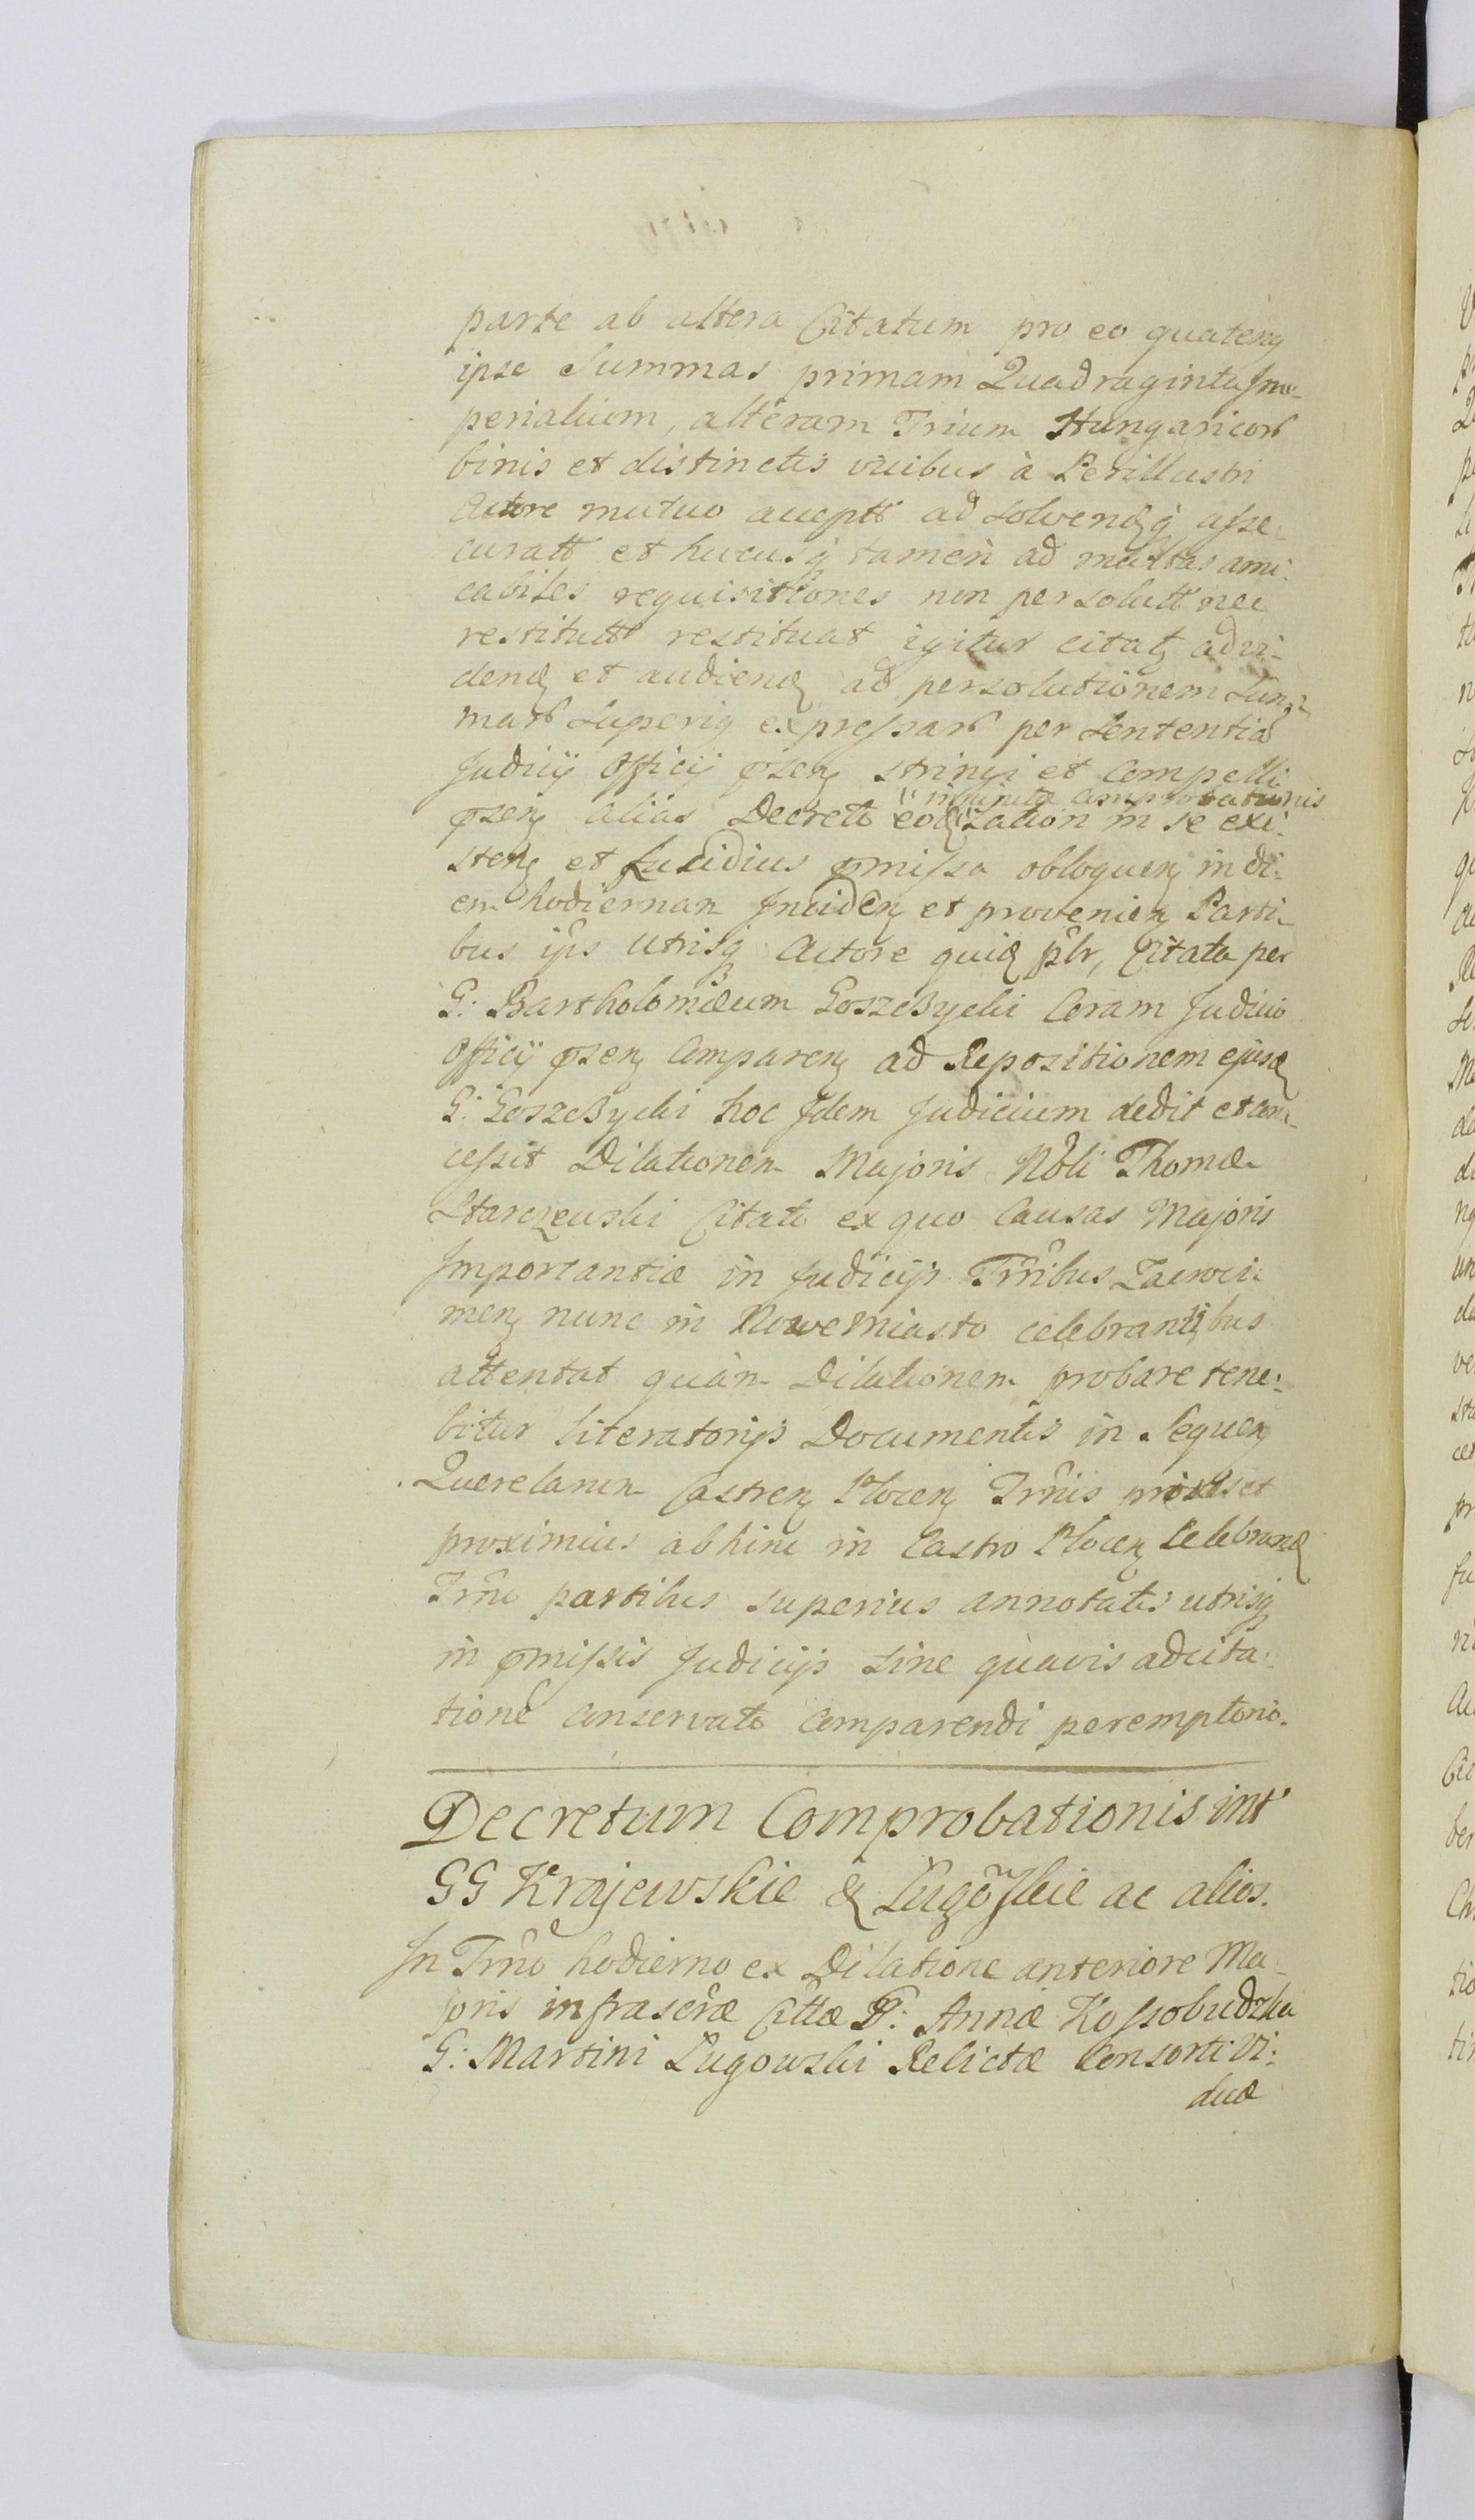 parte ab altera Citatum pro eo quatenꝫ
ipse Summas primam Quadraginta Im-
perialium, alteram Trium Hungaricorꝝ
binis et distinctis vicibus à Perillustri
Actore mutuo accepttꝭ ad solvendꝫq̀ asse-
curattꝭ et hucusq̀ tamen ad multas ami-
cabiles requisitiones non persoluttꝭ nec
restituttꝭ restituat igitur citatꝫ ad vi-
dendꝫ et audiendꝫ ad persolutionem Sum-
marꝝ Superiꝫ expressarꝝ per Sententiã
Judicij Officij p̃senꝫ stringi et Compelli
injunctæ Comprobationis
p̃senꝫ alias Decreti eodꝫ lation in se exi-
stenꝫ et Lucidius p̃missa obloquenꝫ in di-
em hodiernan Incidenꝫ et provenienꝫ Parti-
bus ip̃s utrisq̀ Actore quidꝫ p̃lr, Citato per
G: Bartholomæum Goszczycki Coram Judicio
Officij p̃senꝫ Comparenꝫ ad Repositionem ejusdꝫ
G: Goszczycki hoc Idem Judicium dedit et con-
cessit Dilationem Majoris Nobli Thomæ
Starczewski Citato ex quo Causas Majoris
Importantiæ in Judicijs Trr̃ibus Zacroci-
menꝫ nunc in Nowe miasto celebrantibus
attentat quàm Dilationem probare tene-
bitur literatorijs Documentis in Sequenꝫ
Querelarum Castrenꝫ Plocenꝫ Tr̃mis
proximius abhinc in Castro Plocenꝫ Celebrandꝫ
Trm̃o partibus superius annotatis utrisq̀
in p̃missis Judicijs sine quavis adcita-
tione conservato Comparendi peremptorio.
Decretum Comprobationis int
GG Krajewskie & Lugõskie ac alios.
In Trm̃o hodierno ex Dilatione anteriore Ma-
joris infrascr̃æ Cittæ G: Annæ Kossobudzka
G: Martini Lugowski Relictæ Consorti Vi-
duæ